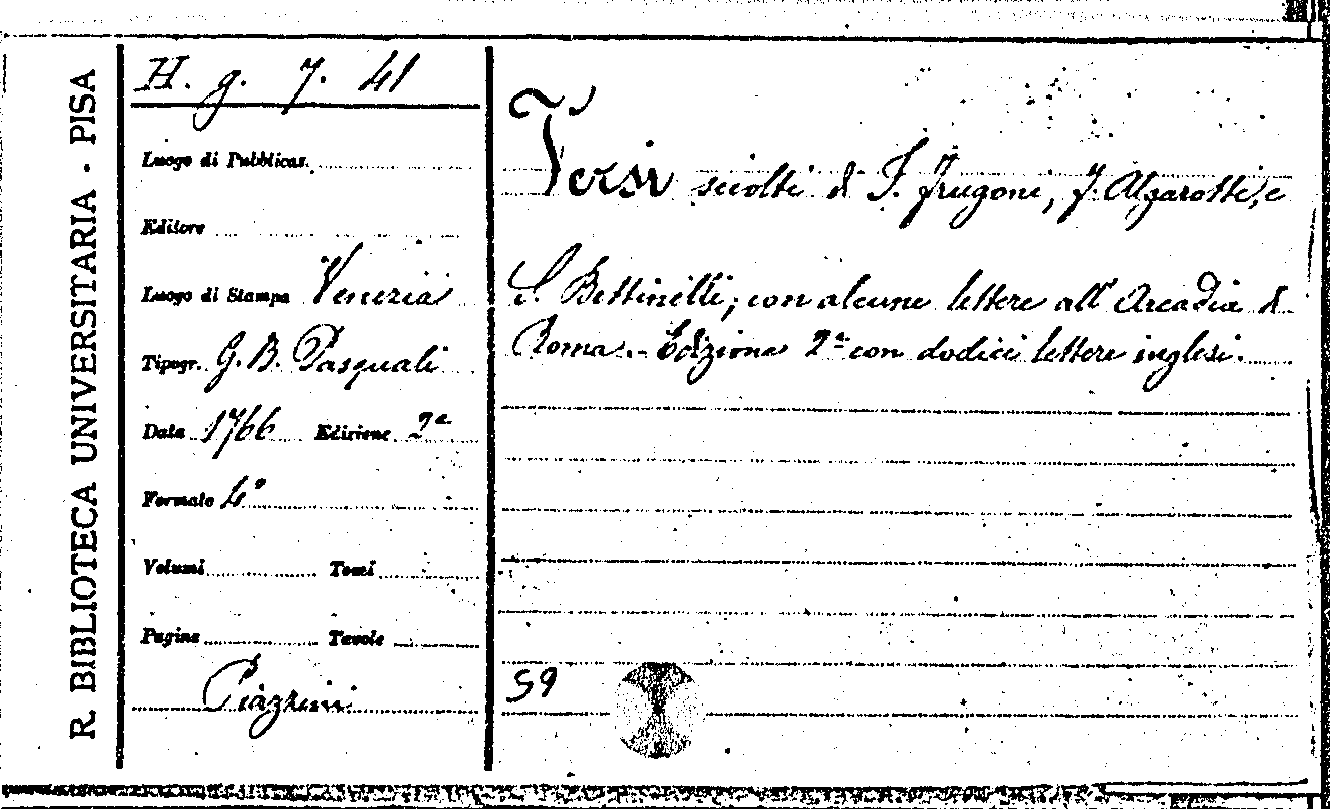 R. BIBLIOTECA UNIVERSITARIA - PISA
H. g. 7. 41
Luogo di Pubblicaz.
Editore
Luogo di Stampa Venezia
Tipogr. G. B. Pasquali
Data 1766 Edizione 2ª
Formato 4º
Volumi Tomi
Pagine Tavole
Piazzini
Versi sciolti di I. Frugoni, F. Algarotti, e
S. Bettinelli; con alcune lettere all' Arcadia di
Roma. - Edizione 2ª con dodici lettere inglesi.
59